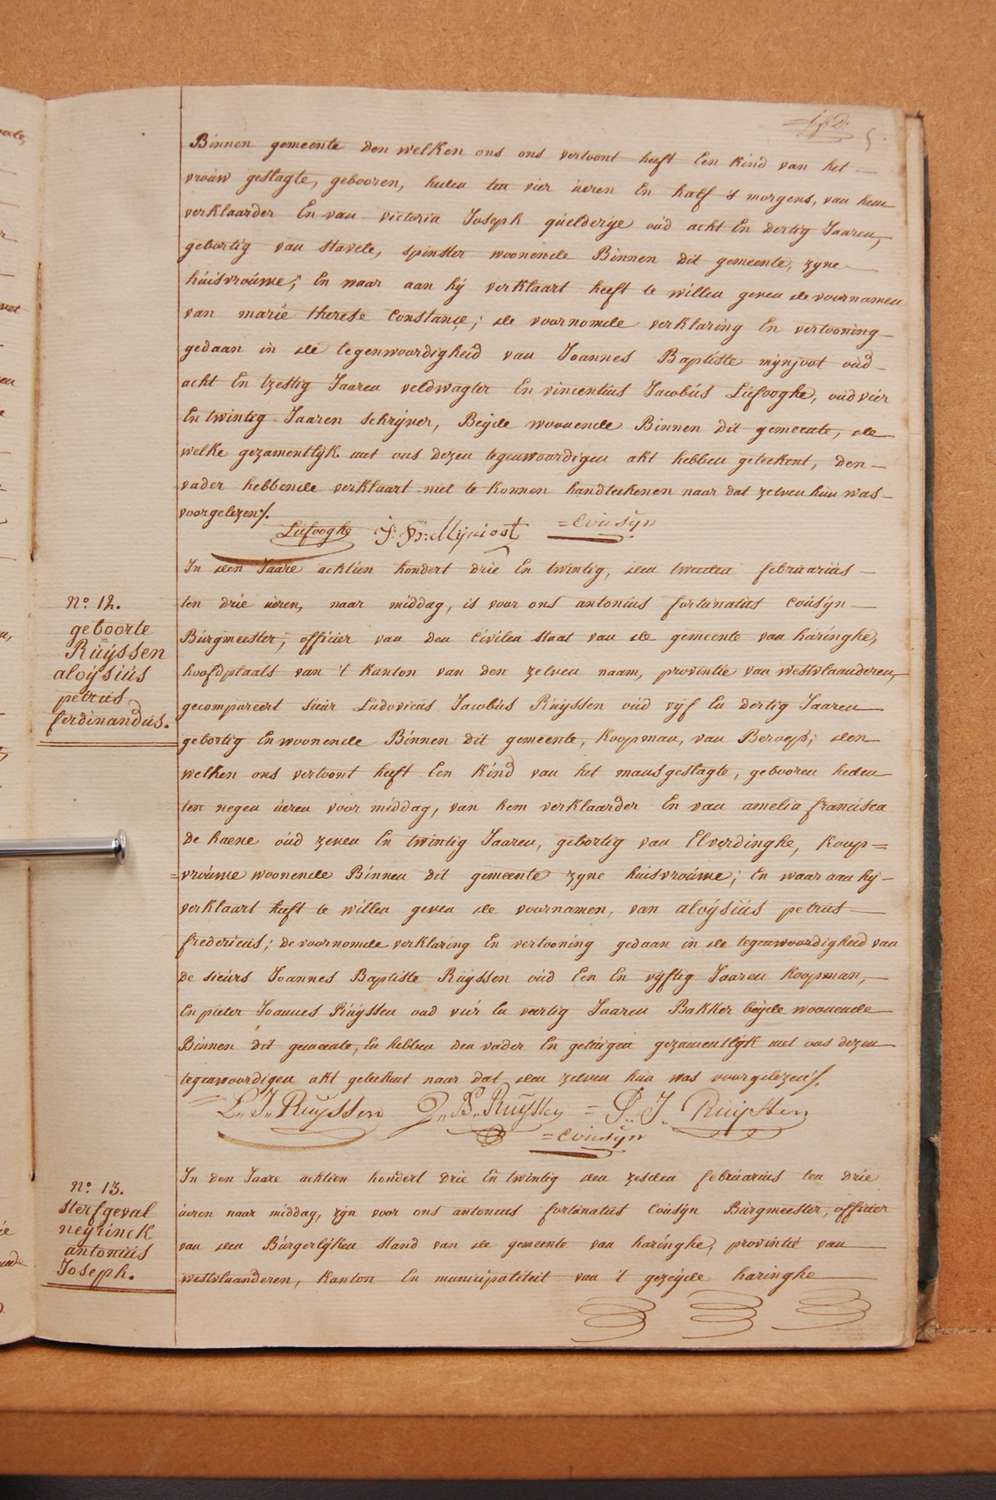 5.
Binnen gemeente den welken ons ons vertoont heeft Een kind van het
vrouw geslagte, gebooren, heden ten vier ueren En half 's morgens, van hem
verklaarder En van victoria Joseph quelderije oud acht En dertig Jaaren,
gebortig van stavele, spinster woonende Binnen dit gemeente, zyne
huisvrouwe; En waar aan hy verklaart heeft te willen geven de voornamen
van marie therese Constance; de voornomde verklaring En vertooning
gedaan in de tegenwoordigheid van Joannes Baptiste mynjoot oud
acht En tzestig Jaaren veldwagter En vincentius Jacobus Lufooghe, oud vier
En twintig Jaaren schryver, Beyde woonende Binnen dit gemeente, de
welke gezamentlyk met ons dezen tegenwoordigen akt hebben geteekent, den
vader hebbende verklaart niet te konnen handteekenen naar dat zelven hun was
voorgelezen./.
Lufooghe J: B: Mijniost = Cousÿn
N.º 12.
geboorte
Rüÿssen
aloÿsiús
petrus
ferdinandus.
In den Jaare achtien hondert drie En twintig, den tweeden februariús
ten drie ueren, naar middag, is voor ons antoniús fortunatus Coúsÿn
Burgmeester, officier van den Civilen staat van de gemeente van haringhe,
hoofdplaats van 't Kanton van den zelven naam, provintie van westvlaanderen,
gecompareert sieur Ludovicus Jacobús Rúÿssen oúd vyf En dertig Jaaren
gebortig En woonende Binnen dit gemeente, Koopman, van Beroep; den
welken ons vertoont heeft Een Kind van het mansgeslagte, gebooren heden
ten negen úeren voor middag, van hem verklaarder En van amelia francisca
de haene oúd zeven En twintig Jaaren, gebortig van Elverdinghe, Koop=
=vroúwe woonende Binnen dit gemeente zyne húisvroúwe; En waar aan hy
verklaart heeft te willen geven de voornamen, van aloÿsiús petrus
fredericus; de voornomde verklaring En vertooning gedaan in de tegenwoordigheid van
De sieurs Joannes Baptiste Rúÿssen oúd Een En vyftig Jaaren Koopman,
En pieter Joannes Rúÿssen oud vier En veertig Jaaren Bakker beÿde woonende
Binnen dit gemeente, En hebben den vader En getúigen gezamentlyk met ons dezen
tegenwoordigen akt geteekent naar dat den zelven hun was voorgelezen/.
L. J. Ruÿssen J. B. Ruÿssen = P. J. Ruÿssen
= Coúsÿn
N.º 13.
Sterfgeval
neÿrinck
antoniús
Joseph.
In den Jaare achtien hondert drie En twintig den zesden februariús ten drie
úeren naar middag, zÿn voor ons antonius fortúnatús Coúsÿn Búrgmeester, officier
van den Búrgerlÿken stand van de gemeente van haringhe, provintie van
westvlaanderen, Kanton En municipaliteit van 't gezeÿde haringhe